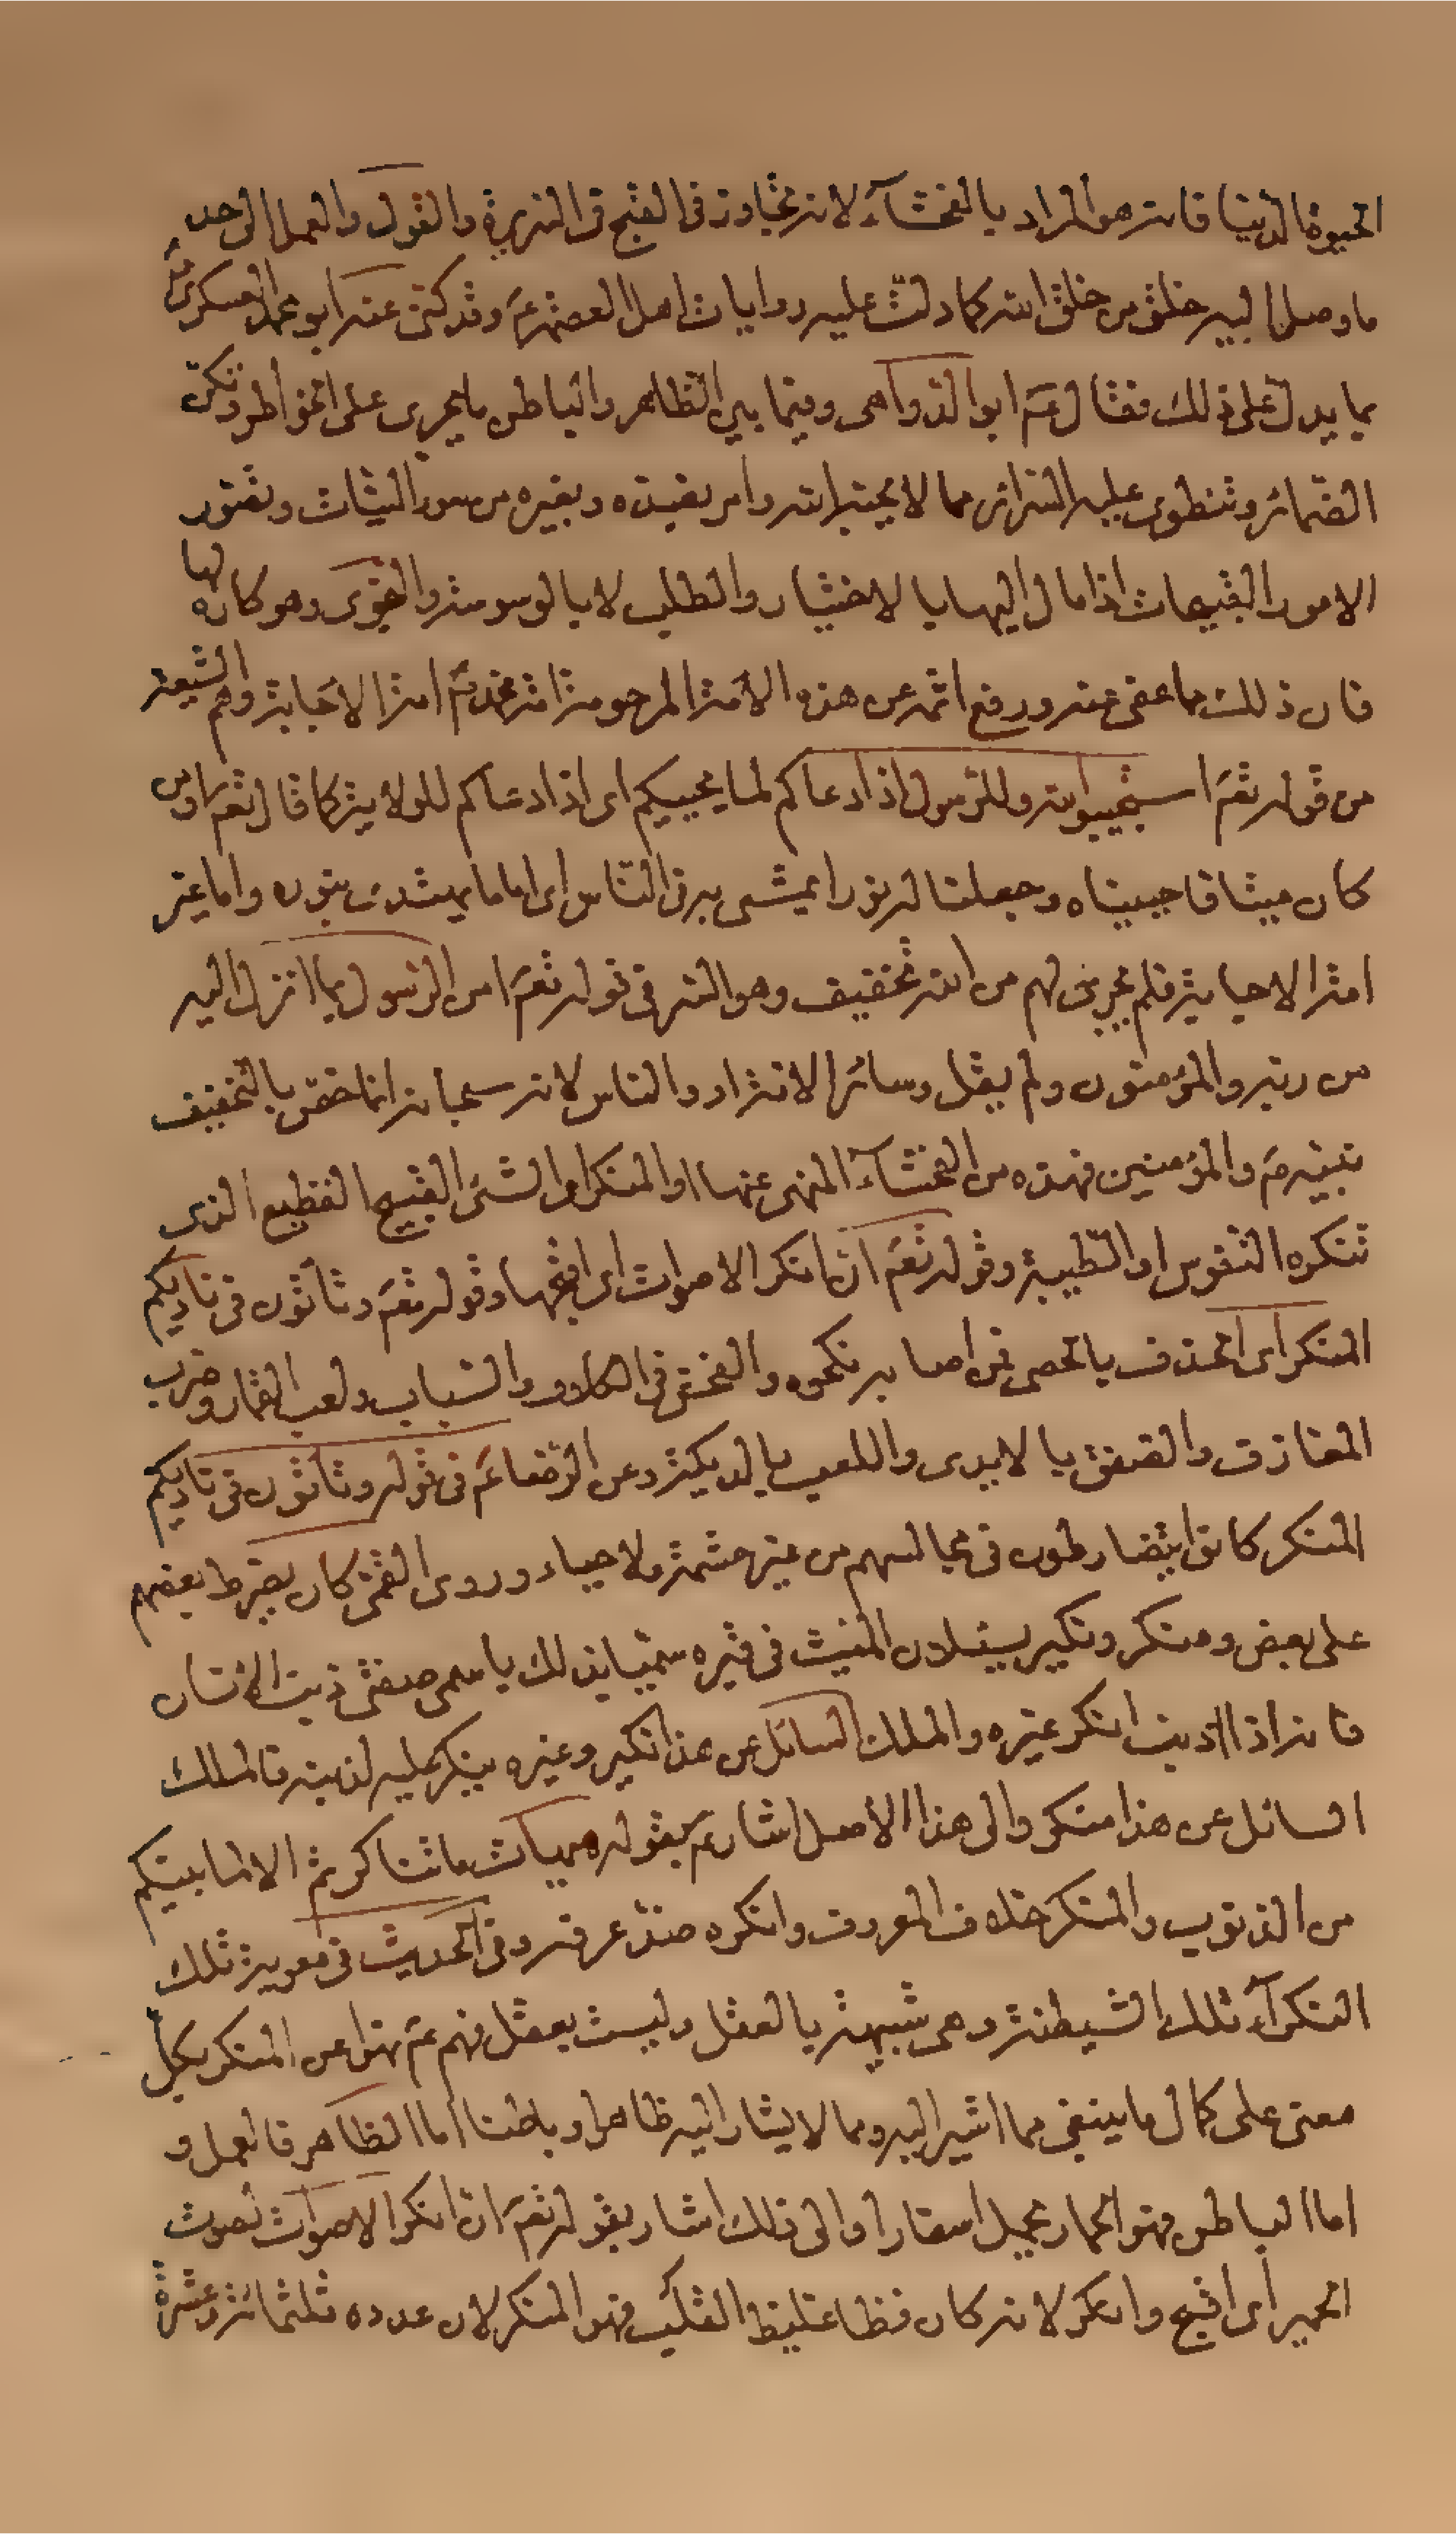 الحيوة الدنيا فانه هو المراد بالفحشآء لانه تجاوز في القبح في السريرة والقول والعمل الى حد
ما وصل اليه خلق من خلق الله كما دلت عليه روايات اهل العصمة ع وقد كنى عنه ابو محمد العسكرى
بما يدل على ذلك فقال ع ابو الدواهى وفيما بين الظاهر والباطن ما يجرى على الخواطر وتكن
الضمائر وتنطوى عليه السرائر مما لا يحبه الله وامر بقيده وبغيره من سوء النيات وبقتور
الامور القبيحات اذا مال اليها بالاختيار والطلب لا بالوسوسة والنجوى وهو كاره لها
فان ذلك مما عفى عنه ورفع اثمه عن هذه الامة المرحومة امة محمد ص امة الاجابة وهم الشيعة
من قوله تعم استجيبوا لله وللرسول اذا دعاكم لما يحييكم اى اذا دعاكم للولاية كما قال تعم او من
كان ميتا فاحييناه وجعلنا له نورا يمشى به في الناس اى اماما يهتدى بنوره واما غير
امة الاجابة فلم يجر لهم من الله تخفيف وهو السر في قوله تعم امن الرسول بما انزل اليه
من ربه والمؤمنون ولم يقل وسائر الافراد والناس لانه سبحانه انما خص بالتخفيف
نبيه ص والمؤمنين فهذه من الفحشآء المنهى عنها او المنكر او الشئ القبيح الفظيع الذى
تنكره النفوس او الطيبة وقوله تعم ان انكر الاصوات اى اقبحها وقوله تعم وتأتون في ناديكم
المنكر اى الحذف بالحصى فمن اصابه نكحوه والفحش في الكلام والسباب ولعب القمار وضرب
المعازف والصفق بالايدى واللعب بالديكة وعن الرضا ع في قوله وتأتون في ناديكم
المنكر كانوا يتضارطون في مجالسهم من غير حشمة ولا حياء وروى القمى كان يضرط بعضهم
على بعض ومنكر ونكير يسئلان الميت في قبره سميا بذلك باسمى صفتى ذنب الانسان
فانه اذا اذنب انكر غيره والملك السائل عن هذا نكير وغيره ينكر عليه لذنبه فالملك
السائل عن هذا منكر والى هذا الاصل اشار ع بقوله هيهات ما تناكرتم الا لما بينكم
من الذنوب والمنكر خلاف المعروف وانكره ضد عرفه وفي الحديث في معوية تلك
النكرآء تلك الشيطنة وهى شبيهة بالعقل وليست بعقل فهم ع نهوا عن المنكر بكل
معنى على كمال ما ينبغى مما اشير اليه ومما لا يشار اليه ظاهرا وباطنا اما الظاهر فالعمل و
اما الباطن فهو الحمار يحمل اسفارا والى ذلك اشار بقوله تعم ان انكر الاصوات لصوت
الحمير اى اقبح وانكر لانه كان فظا غليظ القلب فهو المنكر لان عدده ثلثمائة وعشرة